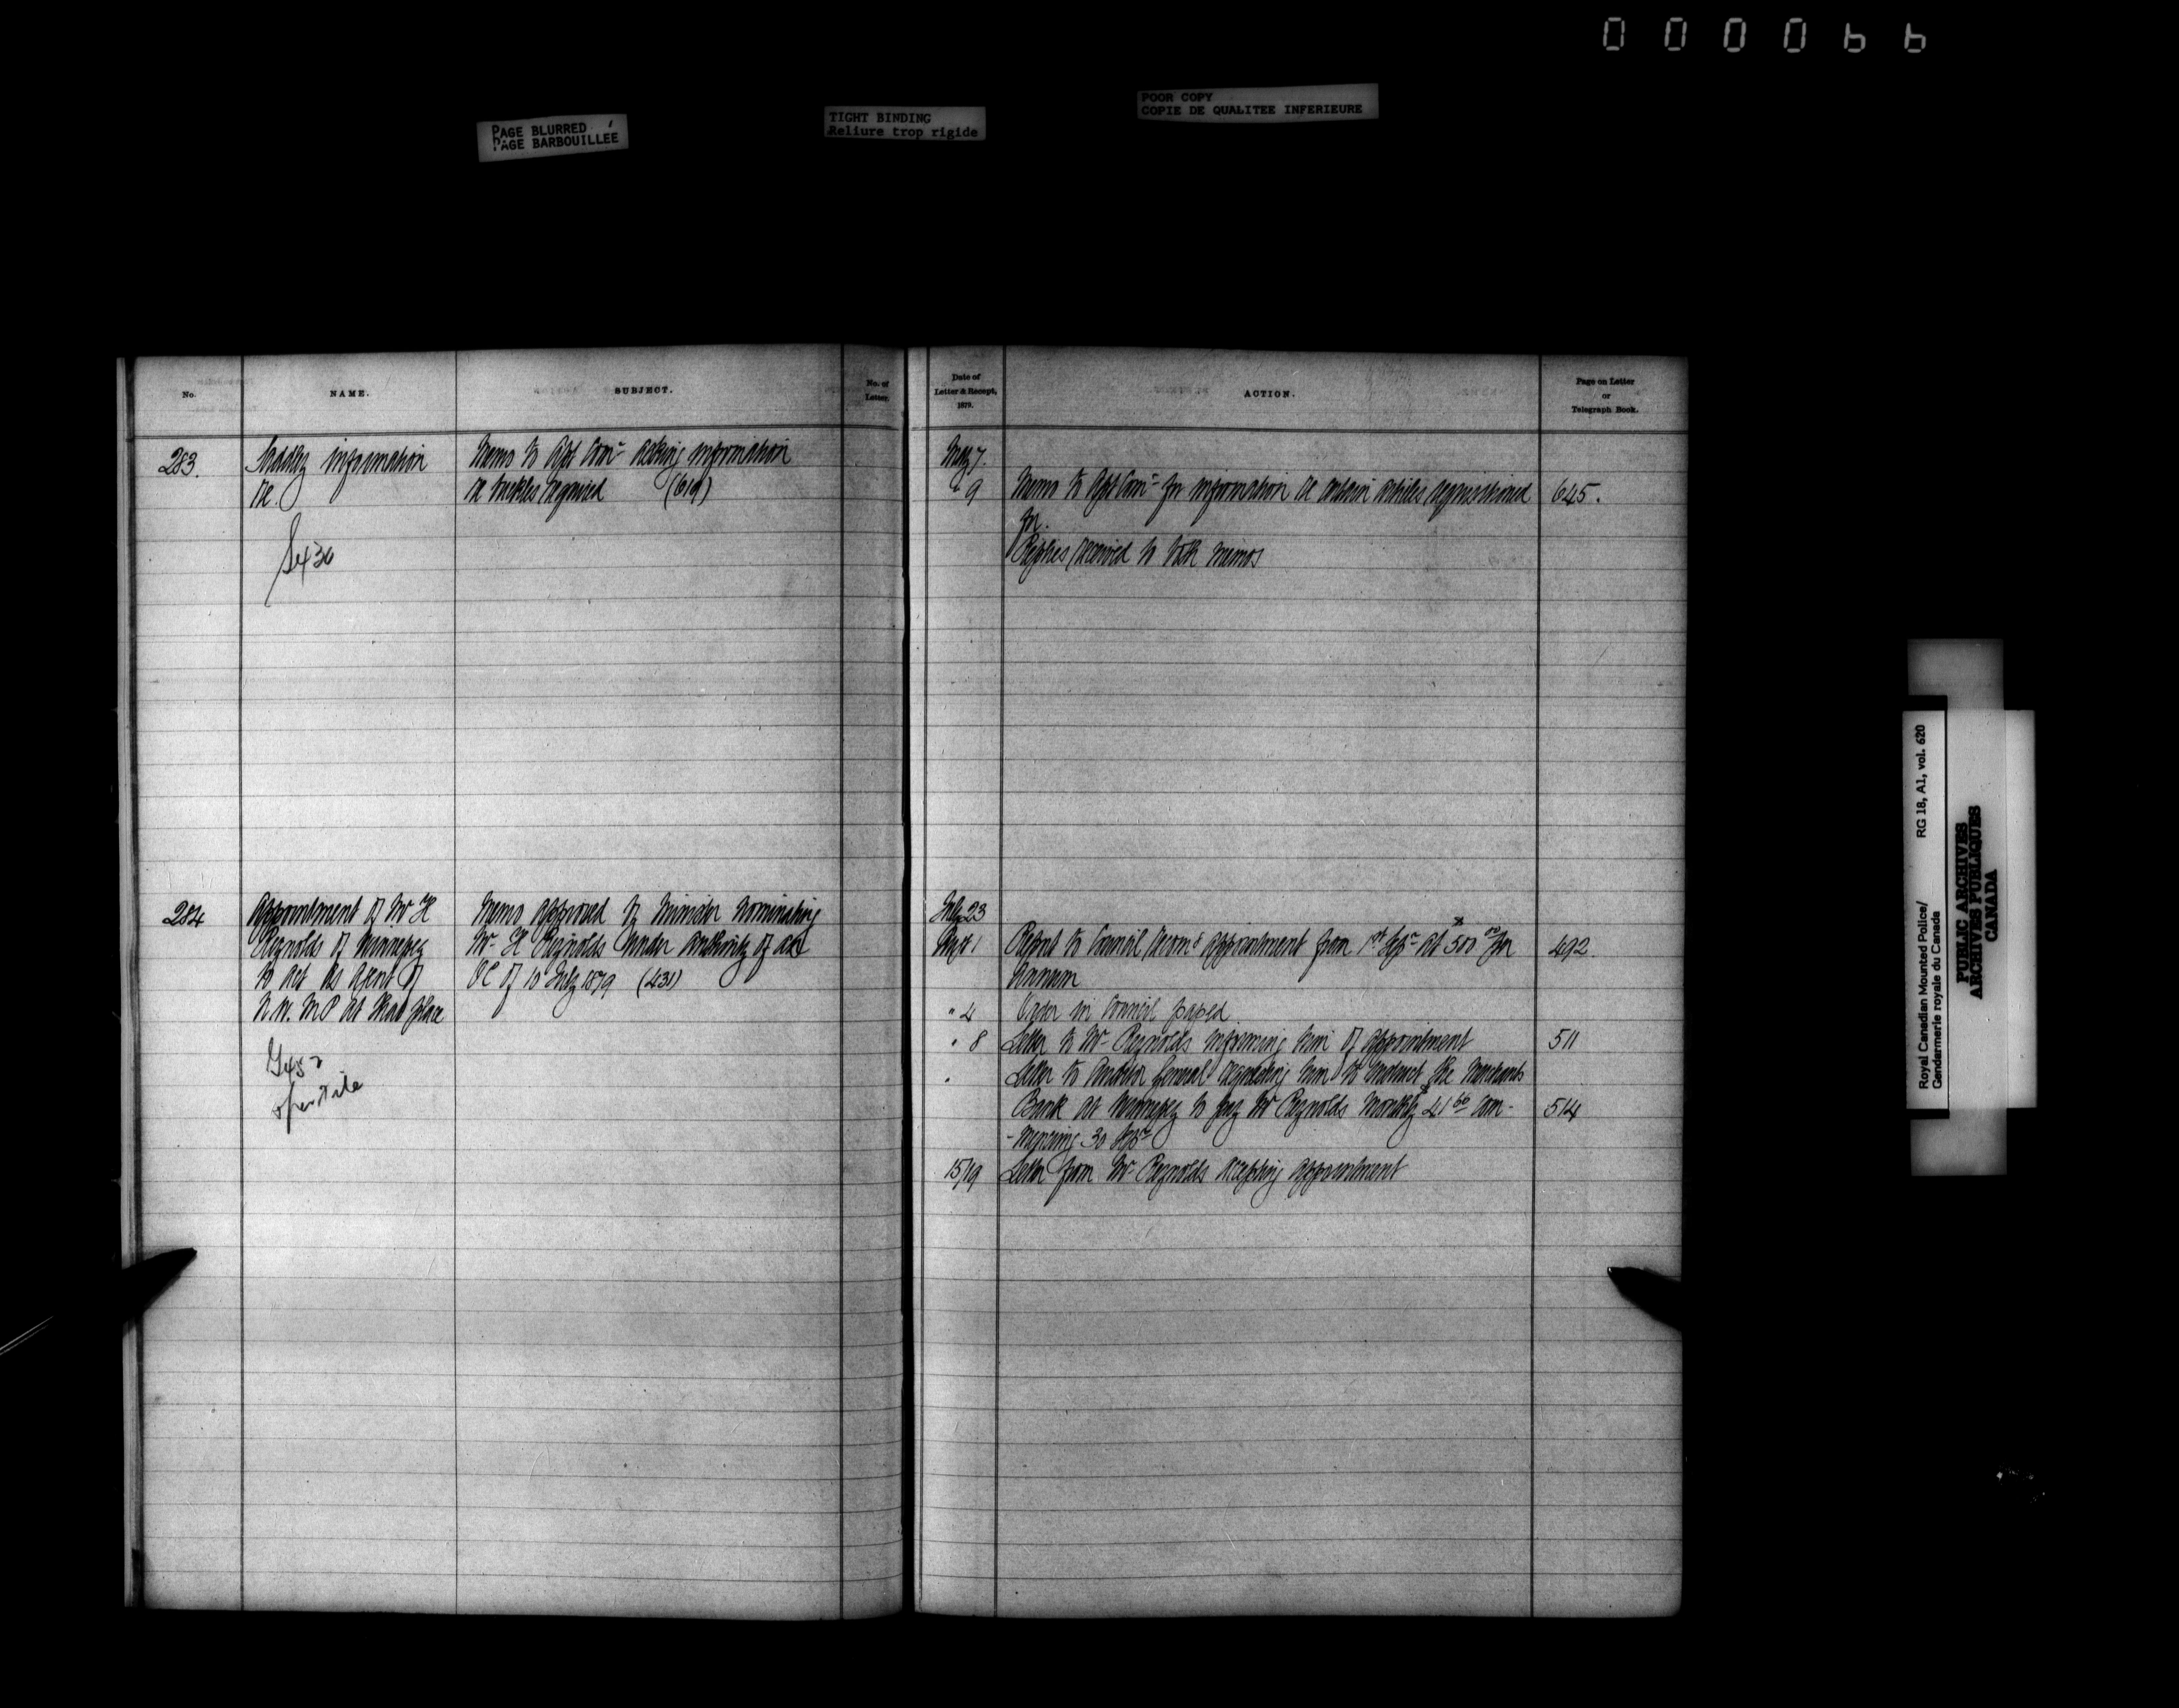 000066
PAGE BLURRED
PAGE BARBOUILLÉE
TIGHT BINDING
Reliure trop rigide
POOR COPY
COPIE DE QUALITEE INFERIEURE
No.
NAME.
SUBJECT.
No. of
Letter.
Date of
Letter & Receipt,
1879.
ACTION.
Page on Letter
or
Telegraph Book.
283.
information
re
Memo to Asst Comr asking information
re buckles required (619)
May 7.
" 9
Memo to Asst Comr for information re certain articles requisitioned
for.
645.
Replies received to both memos
284
Appointment of Mr H
Reynolds of Winnipeg
to act as Agent of
N. W. M P at that place
Memo approved by Minister nominating
Mr H Reynolds under authority of
OC of 10 July 1879 (431)
July 23
1
Report to Council recomg appointment from 1st Sepr at $500 00 per
Annum
492.
" 4
Order in Council passed
" 8
Letter to Mr Reynolds informing him of appointment
511
Letter to Auditor General requesting him to instruct the Merchants
Bank at Winnipeg to pay Mr Reynolds monthly $41 66 com-
-mencing 30 Sepr
514
15/19
Letter from Mr Reynolds accepting appointment
Royal Canadian Mounted Police/
Gendarmerie royale du Canada
RG 18, A1, vol. 620
PUBLIC ARCHIVES
ARCHIVES PUBLIQUES
CANADA